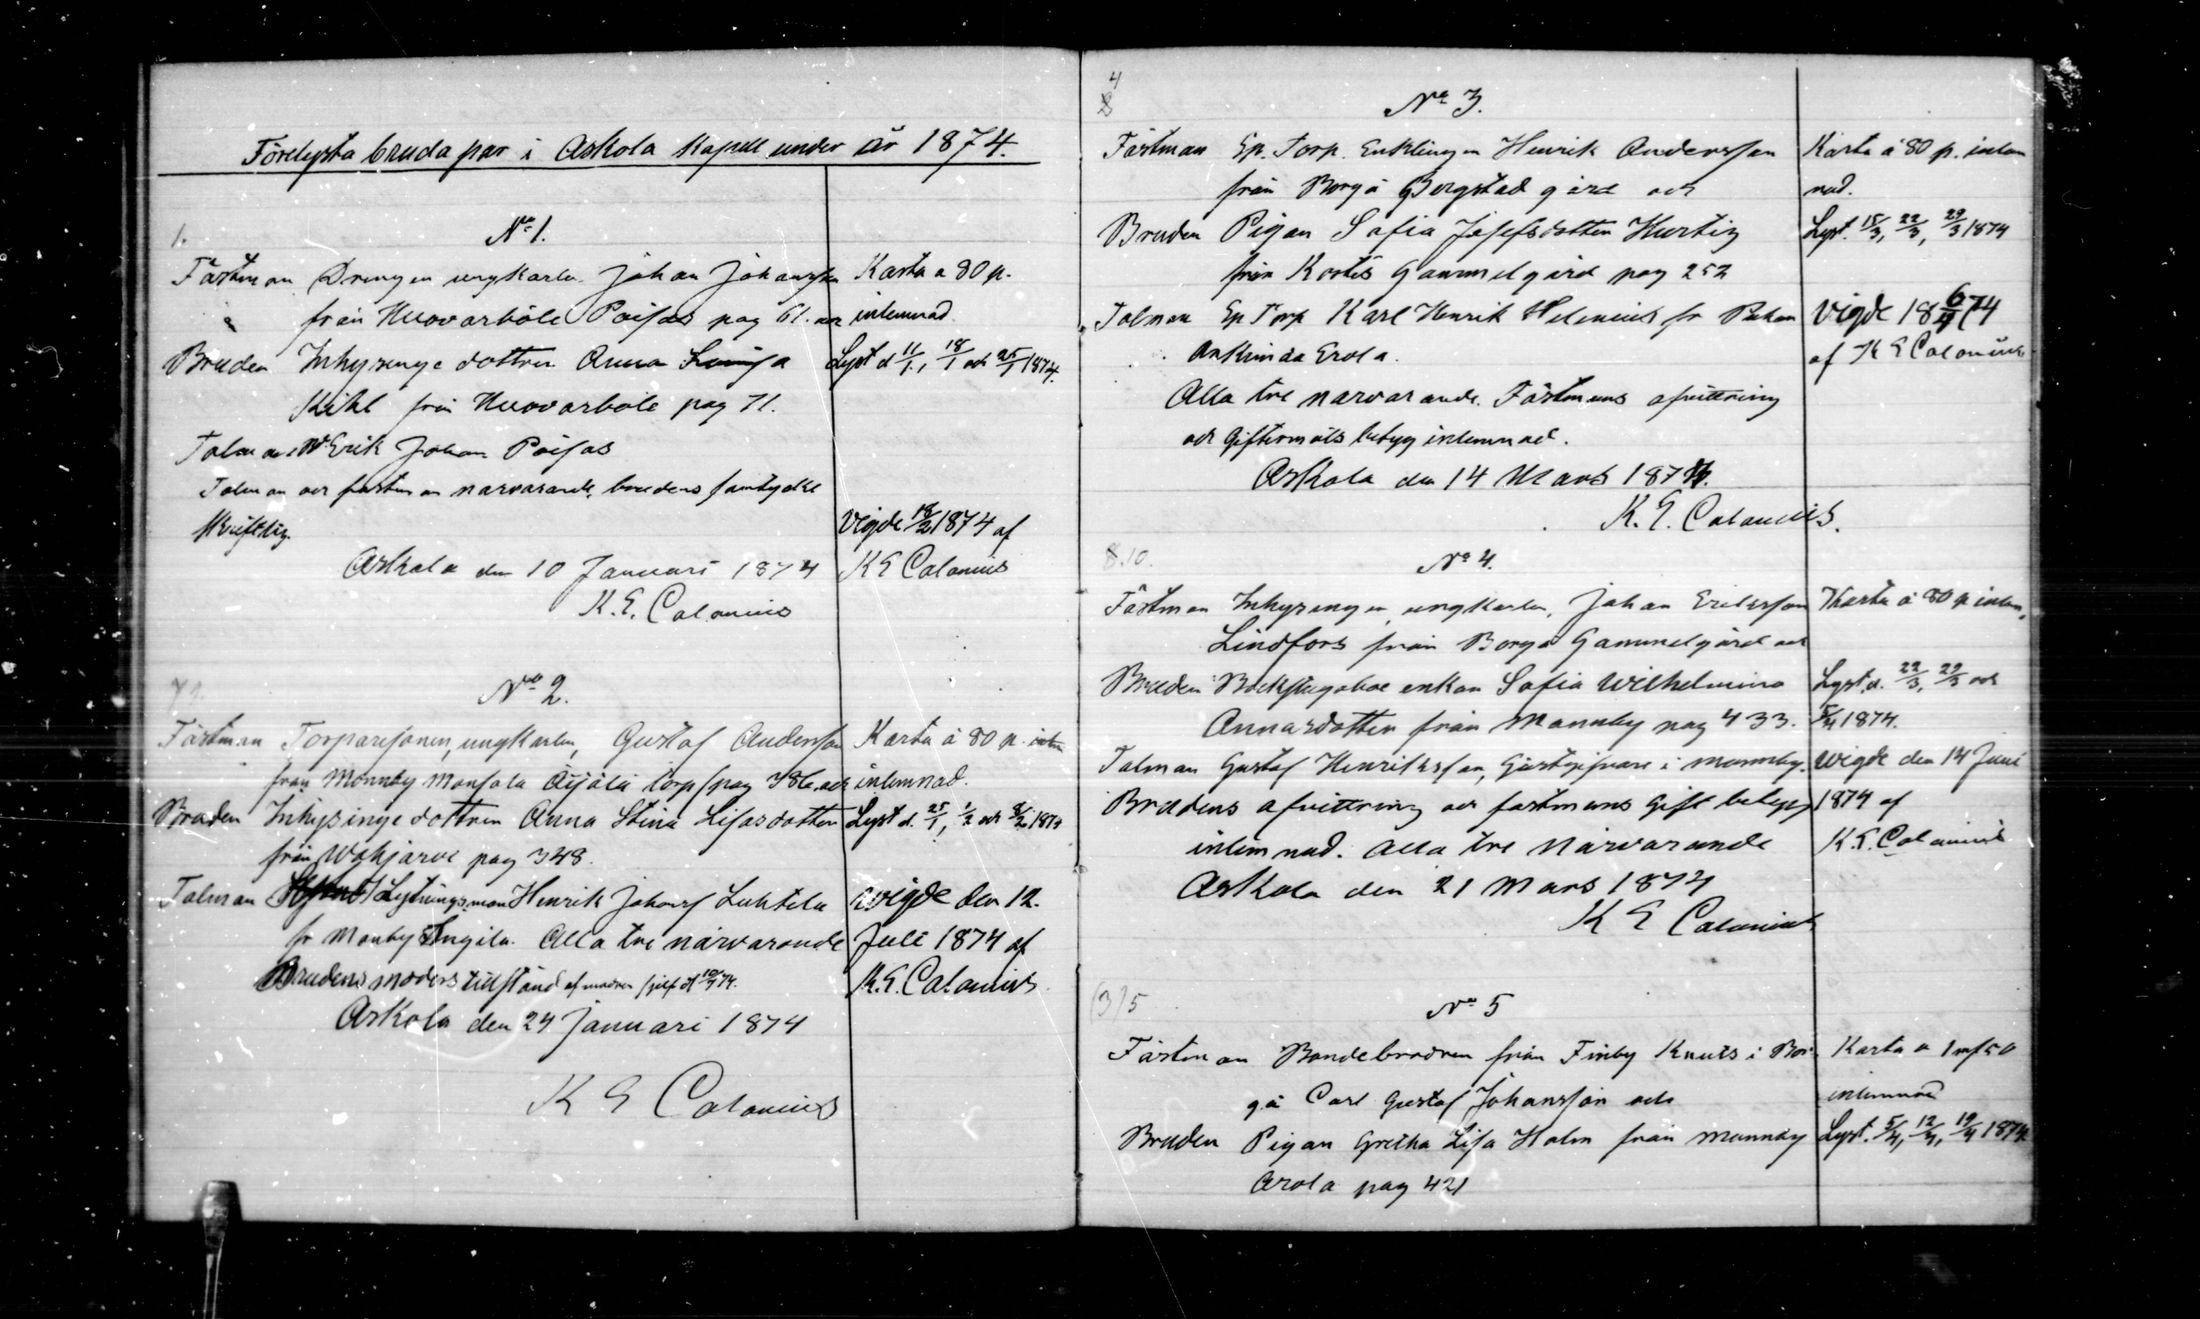 Förelysta bruda par i Askola Kapell under år 1874.
1.
No 1.
Fästman Drengen ungkarlen Johan Johansson
från Huovarböle Paifas pag 61. och
Bruden Inhysinge dottren Anna Lovisa
Kihl från Huovarböle pag 71.
Talman Erik Johan Paifas
Talman och fästman närvarande, brudens samtycke
skriftlig.
Askola den 10 Januari 1874
K. E. Calonius
Karta a 80 p.
inlemnad
Lyst d 11/1, 18/1 och 25/1 1874.
Vigde 18/2 1874 af
K E Calonius
No 2.
Fästman Torparesonen, ungkarlen, Gustaf Andersson
från Monnby Monsala Äijälä torp pag 386, och
Bruden Inhysinge dottren Anna Stina Lisasdotter
från Wahijärvi pag 348.
Talman Lysningsman Henrik Johanss Luhtela
fr Monby Engila. Alla tre närvarande
Brudens moders tillstånd af modren sjelf d 10/1 74.
Askola den 24 Januari 1874
K E Calonius
Karta á 80 p.
inlemnad.
Lyst d. 25/1, 1/2 och 8/2 1874
Wigde den 12.
Juli 1874 af
K. E. Calonius
4
No 3.
Fästman Ep. Torp. Enklingen Henrik Andersson
från Borgå Bergstad gård och
Bruden Pigan Sofia Josefsdotter Hurtig
från Kortis Gammelgård pag 252
Talman Ep Torp Karl Henrik Helenius fr
Erola.
Alla tre närvarande. Fästmans afvittring
och Giftermåls betyg inlemnad.
Askola den 14 Mars 1874.
K. E. Calonius.
Karta á 80 p. inlem
nad.
Lyst. 15/3, 22/3, 29/3 1874
Vigde 18 6/4 74
af K E Calonius
8.10.
No 4.
Fästman Inhysingen, ungkarlen, Johan Eriksson
Lindfors från Borgå Gammelgård och
Bruden Backstugoboe enkan Sofia Wilhelmina
Annasdotter från Monnby pag 433.
Talman Gustaf Henriksson, Gästgifvare i monnby.
Brudens afvittring och fästmans Gift betyg
inlemnad. Alla tre Närvarande
Askola den 21 Mars 1874
K E Calonius
Karta á 80 p inlem,
Lyst, d. 22/3, 29/3 och
5/4 1874.
Wigde den 14 Juni
1874 af
K. E. Calonius
(3) 5
No 5
Fästman Bondebrodren från Finby Knuts i Bor-
gå Carl Gustaf Johansson och
Bruden Pigan Gretha Lisa Holm från monnby
Arola pag 421
Karta a 1 mf 50
inlemnad
Lyst. 5/4, 12/4, 19/4 1874